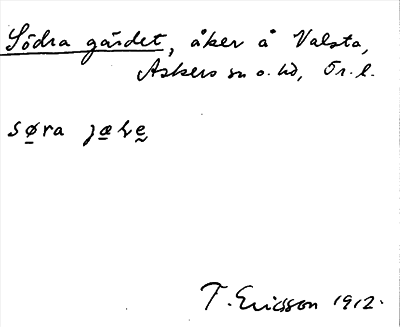 Södra gärdet, åker å Valsta,
Askers sn o. hd, Ör. l.
søra
T. Ericsson 1912.